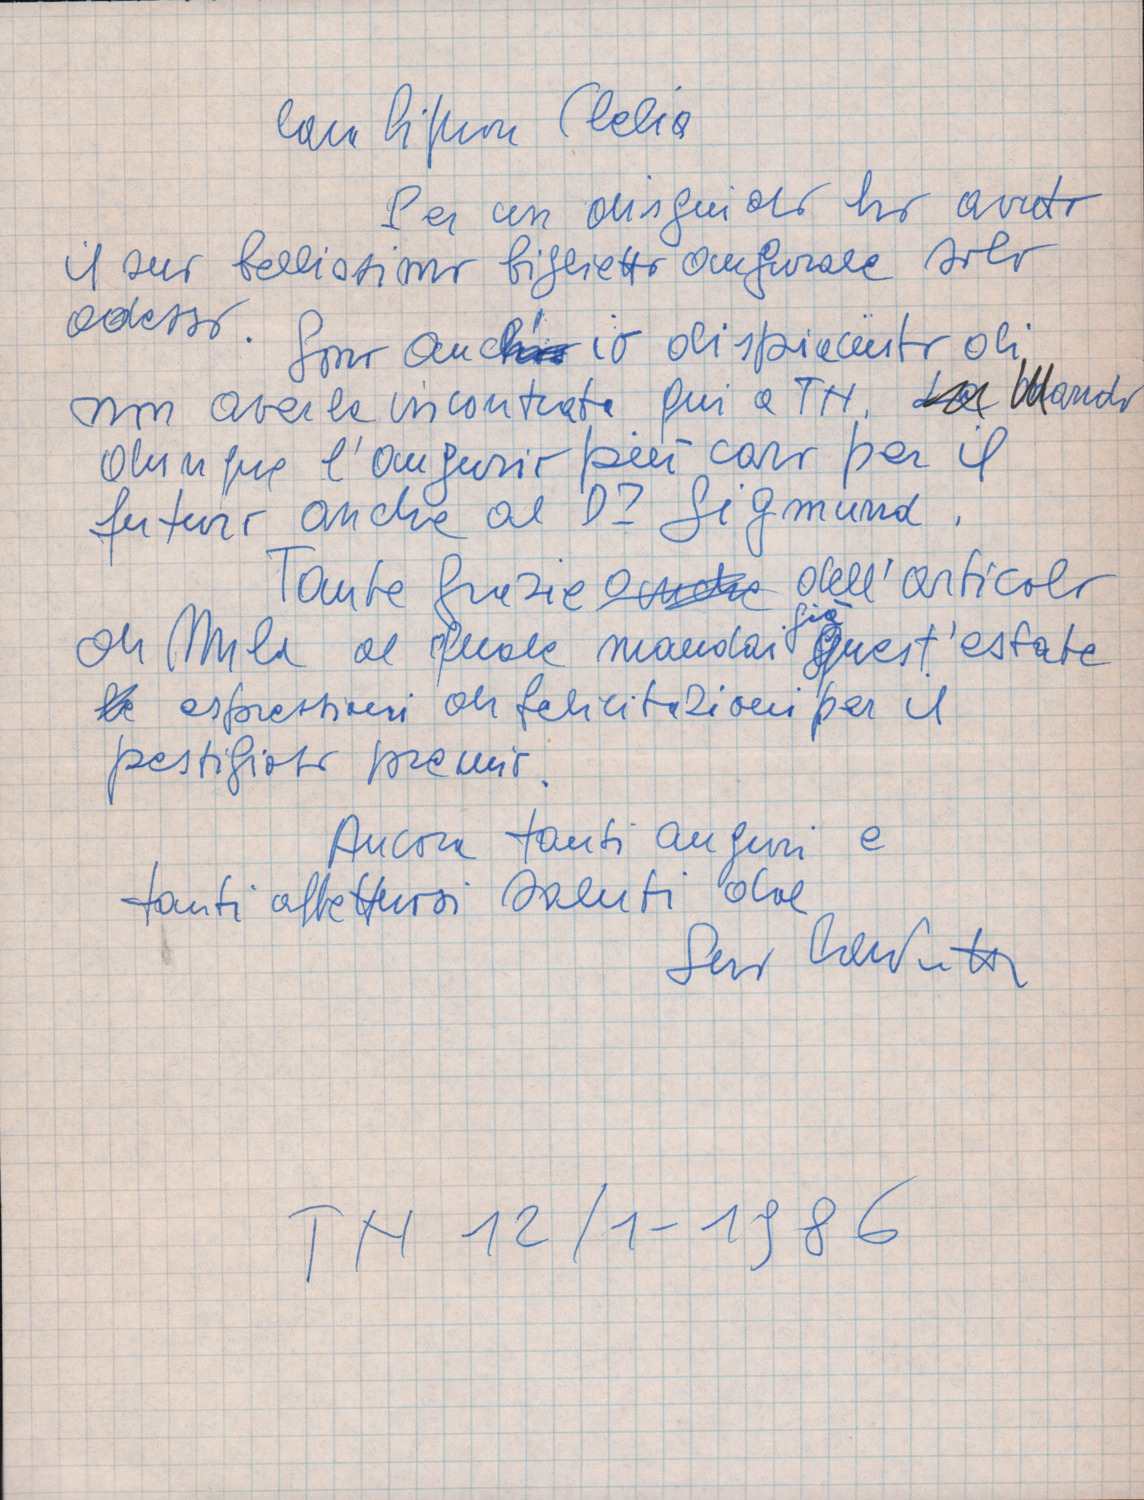 Cara Signora Clelia
Per un disguido ho avuto
il suo bellissimo biglietto augurale solo
adesso. Sono anch' io dispiaciuto di
non averla incontrata qui a TH. Mando
dunque l'augurio più caro per il
futuro anche al D.r Sigmund.
Tante grazie anche dell'articolo
di Mila al quale mandai già quest'estate
le espressioni di felicitazioni per il
pestigioso premio.
Ancora tanti auguri e
tanti affettuosi saluti dal
Suo
TH 12/1-1986